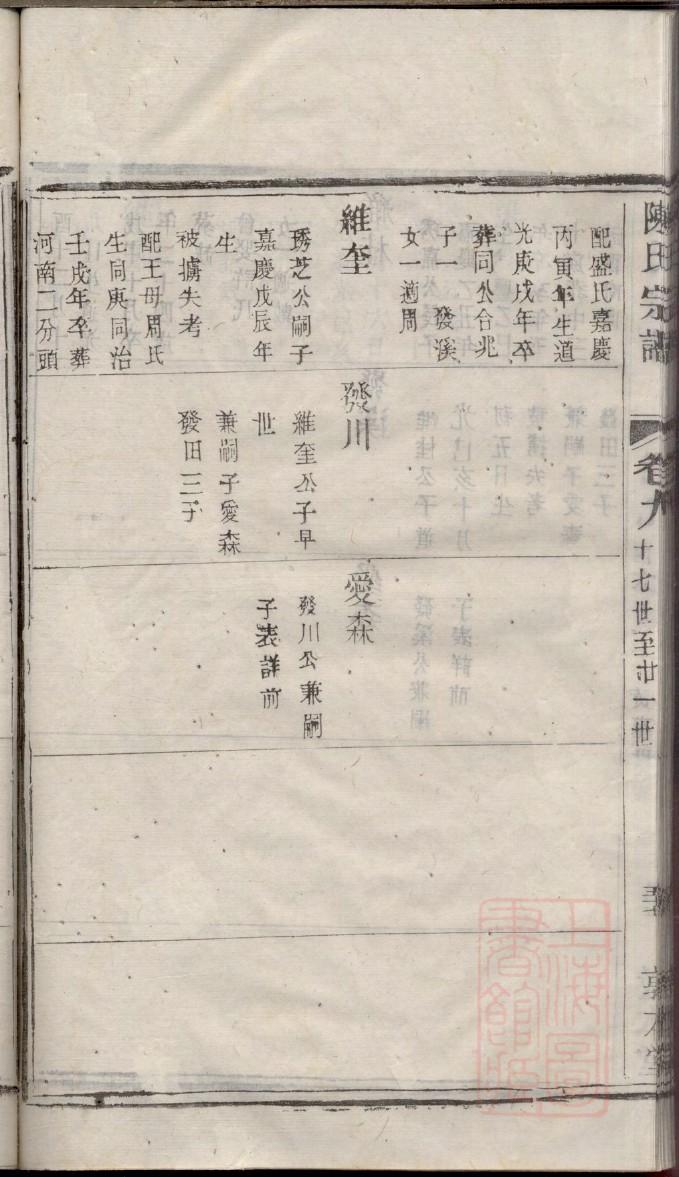 陳氏宗譜
卷九
十七世至廿一世
配盛氏嘉慶
丙寅年生道
光庚戌年卒
葬同公合兆
子一 發溪
女一適周
維奎
琇芝公嗣子
嘉慶戊辰年
生
被擄失考
配王母周氏
生同庚同治
壬戌年卒葬
河南二分頭
發川
維奎公子早
世
兼嗣子愛森
發田三子
愛森
發川公兼嗣
子表詳前
上海圖
書館藏